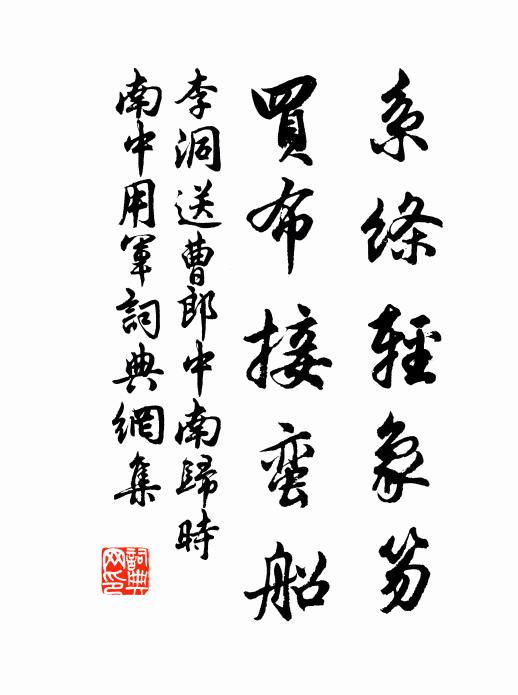 系絛輕象笏
買布接蛮船
李洞送曹郎中南歸時
南中用軍詞典網集
詞典网印